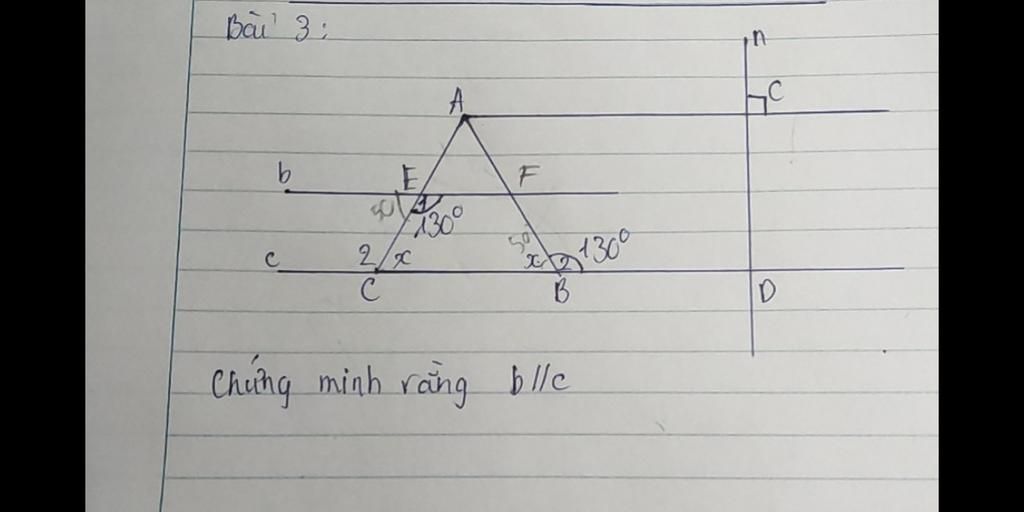 Bài 3:
n
A
C
b
E
F
50
1
130°
50
c
2
x
x
2
130°
C
B
D
Chứng minh rằng b//c